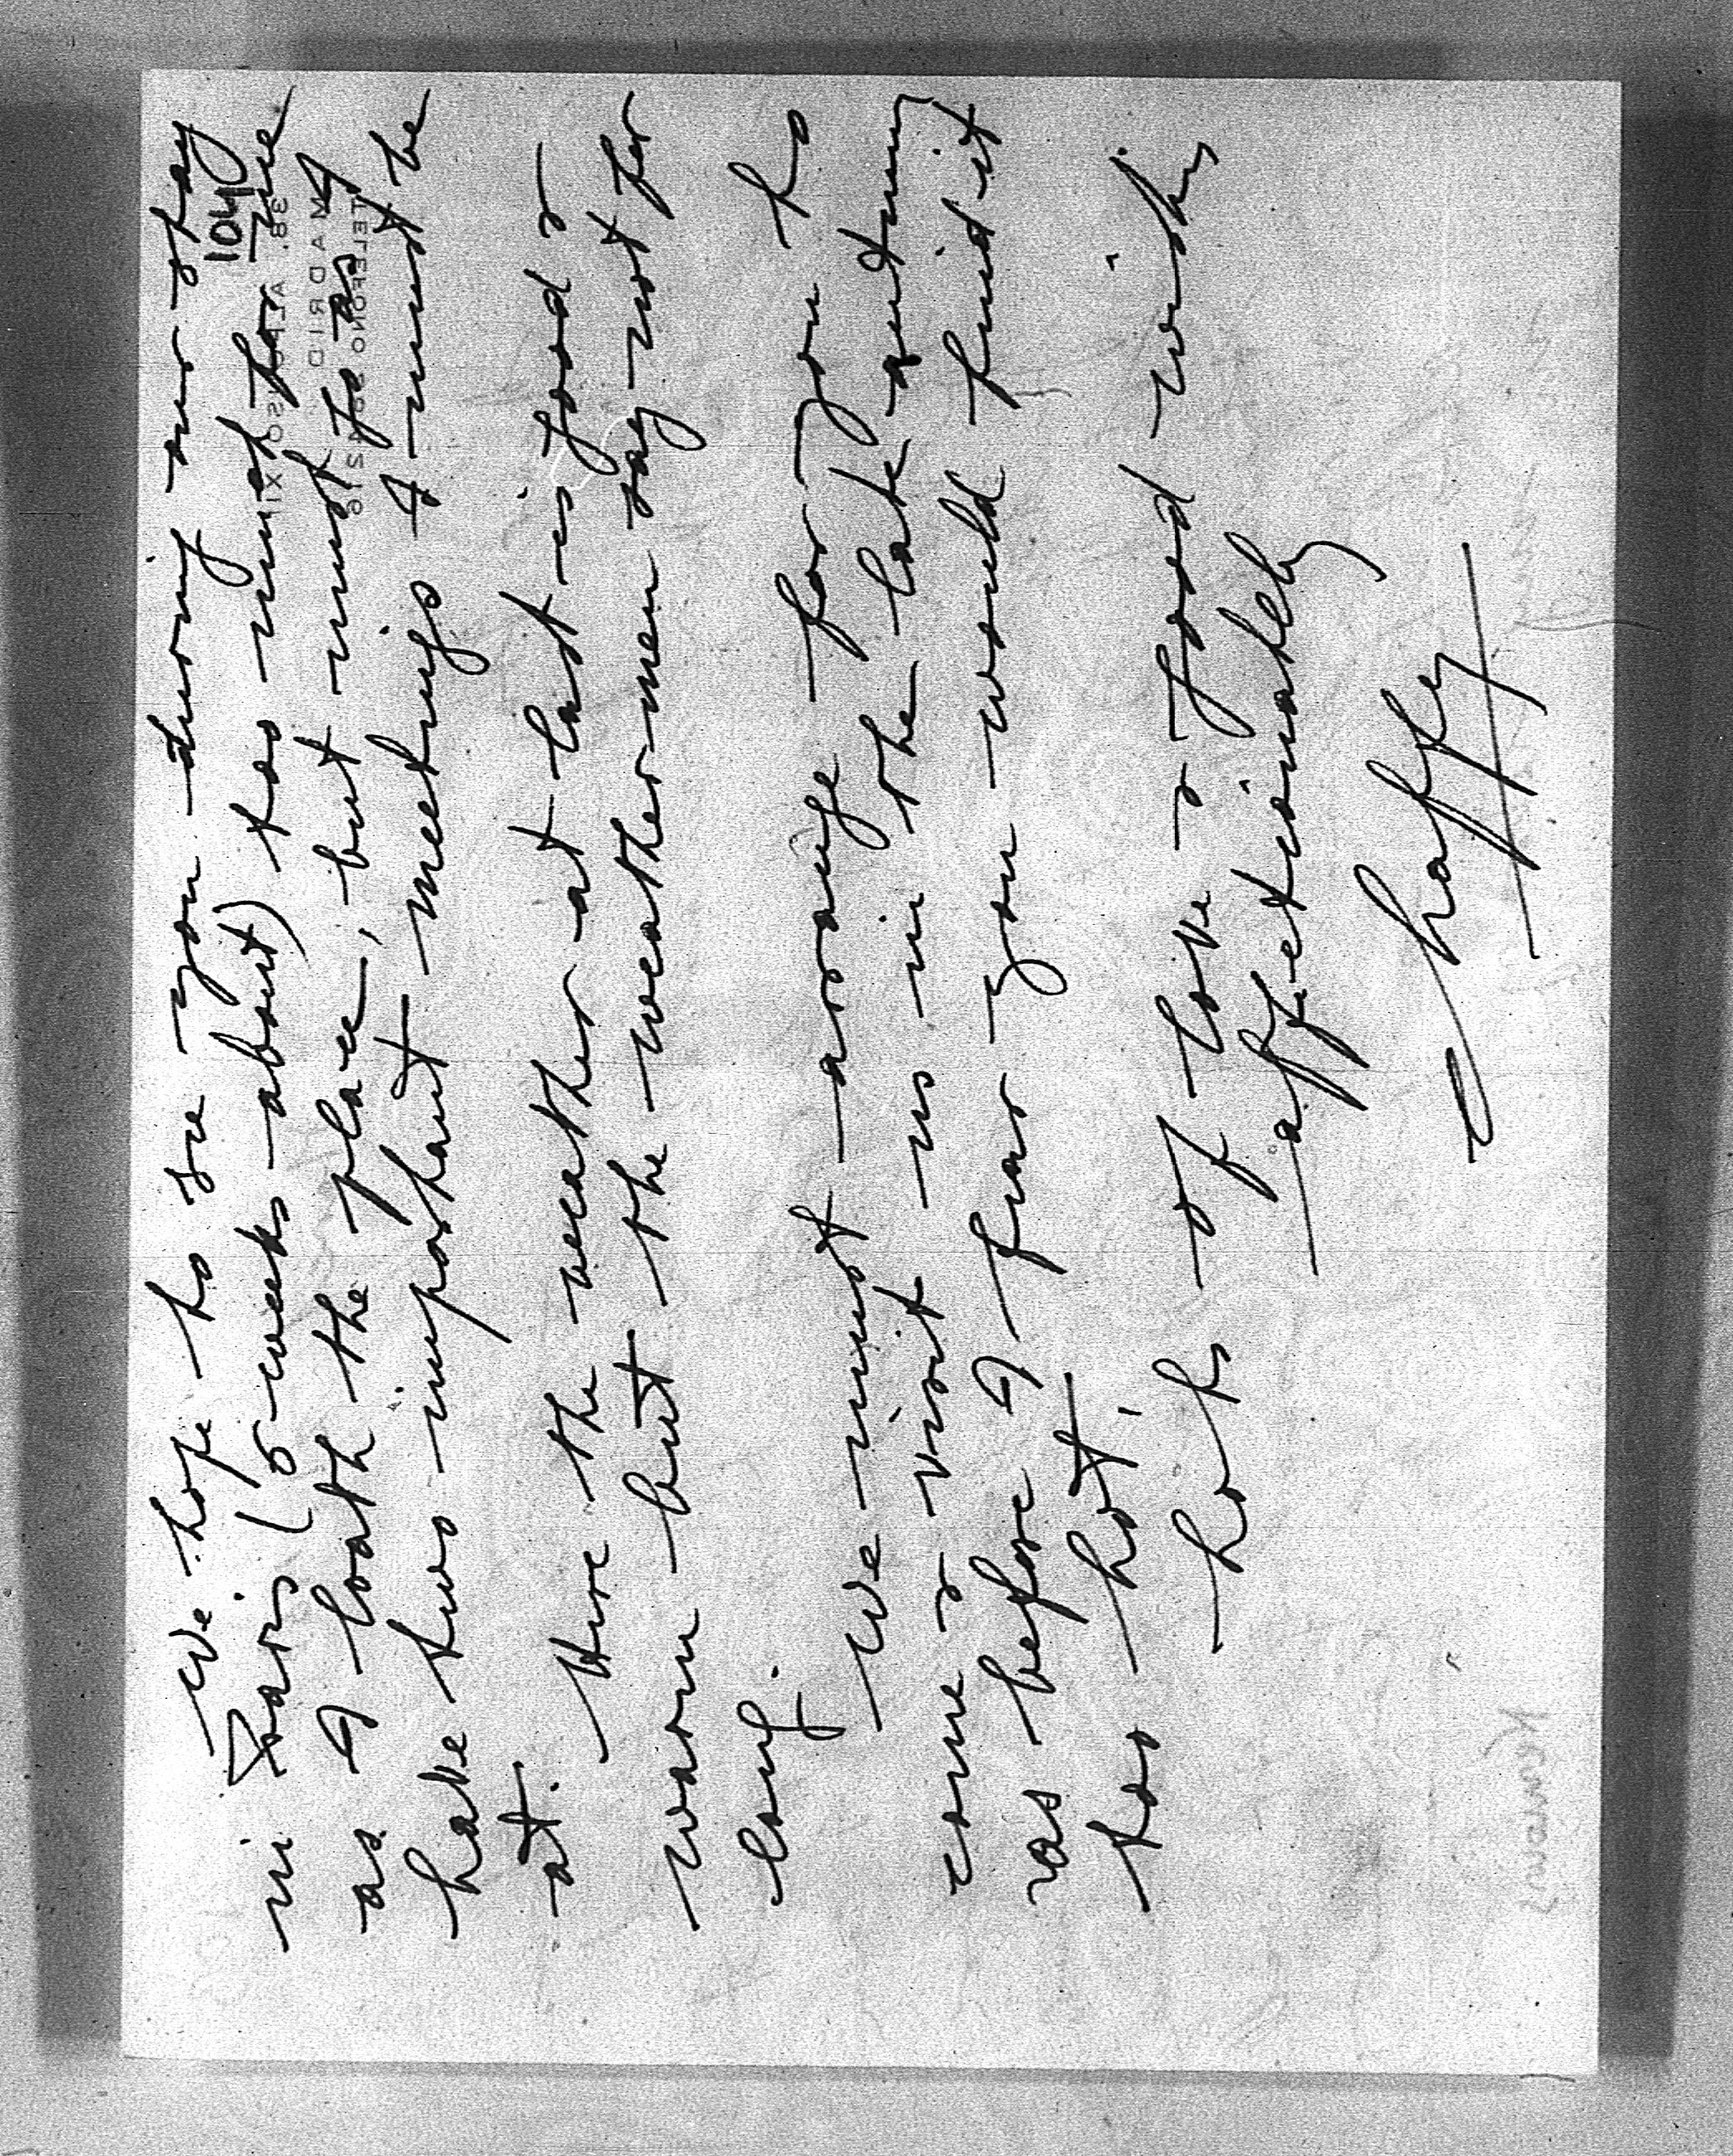 104
We hope to see you during our stay
in Paris (6 weeks about) too much for me
as I loath the place, but must go as I
have two important meetings I must be
at. Here the weather at last is good &
warm but the weather-men say not for
long.
We must arrange for you to
come & visit us in the late autumn
as before I fear you would find it
too hot!
lots of love & good wishes
affectionately
38. ALFONSO XII
MADRID
TELEFONO